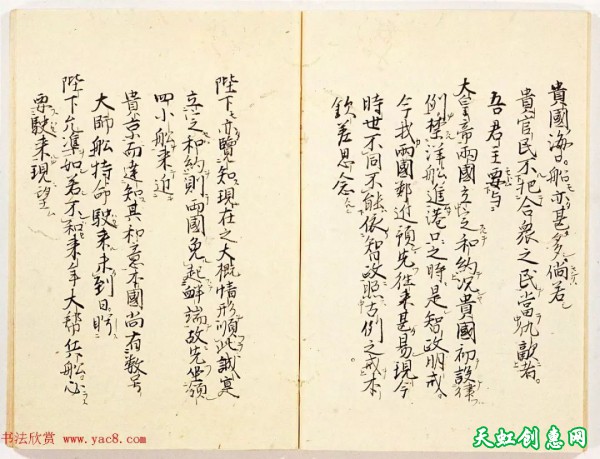 貴國海口。船亦甚多倘若
貴官民不把合衆之民當敵者。
吾君主要与
大皇帝兩國立定之和納况貴國初設律
例禁洋船進港口之時是智政明戒
今我兩國鄰近預先往来甚易現今
時世不同不能依智政照古例之戒本
欽差思念
陛下亦覽知現在之大概情形順此誠寔
立之和納則兩國免起衅端故先坐領
四小船来近
貴京而達知其和意本國尚有数号
大師船特命駛来未到日盼
陛下允準如若不和来年大幇兵船必
要駛来現望
书法欣赏 www.yac8.com
天虹创意网